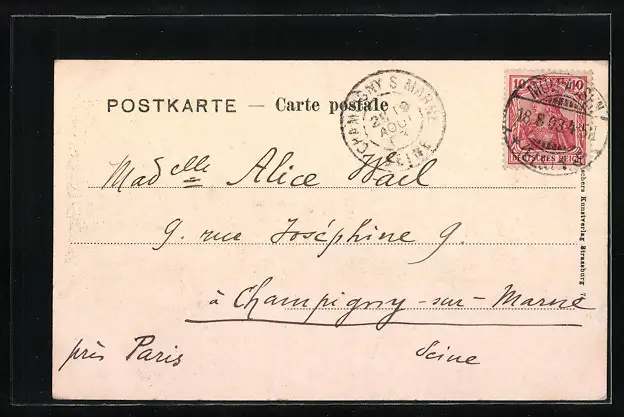 POSTKARTE — Carte postale
CHAMPIGNY S MARNE
19
AOUT
SEINE
10 10
DEUTSCHES REICH
18.8.03.4-5
Madelle Alice Weil
9. rue Joséphine 9.
à Champigny-sur-Marne
près Paris
Seine
Kunstverlag Strassburg